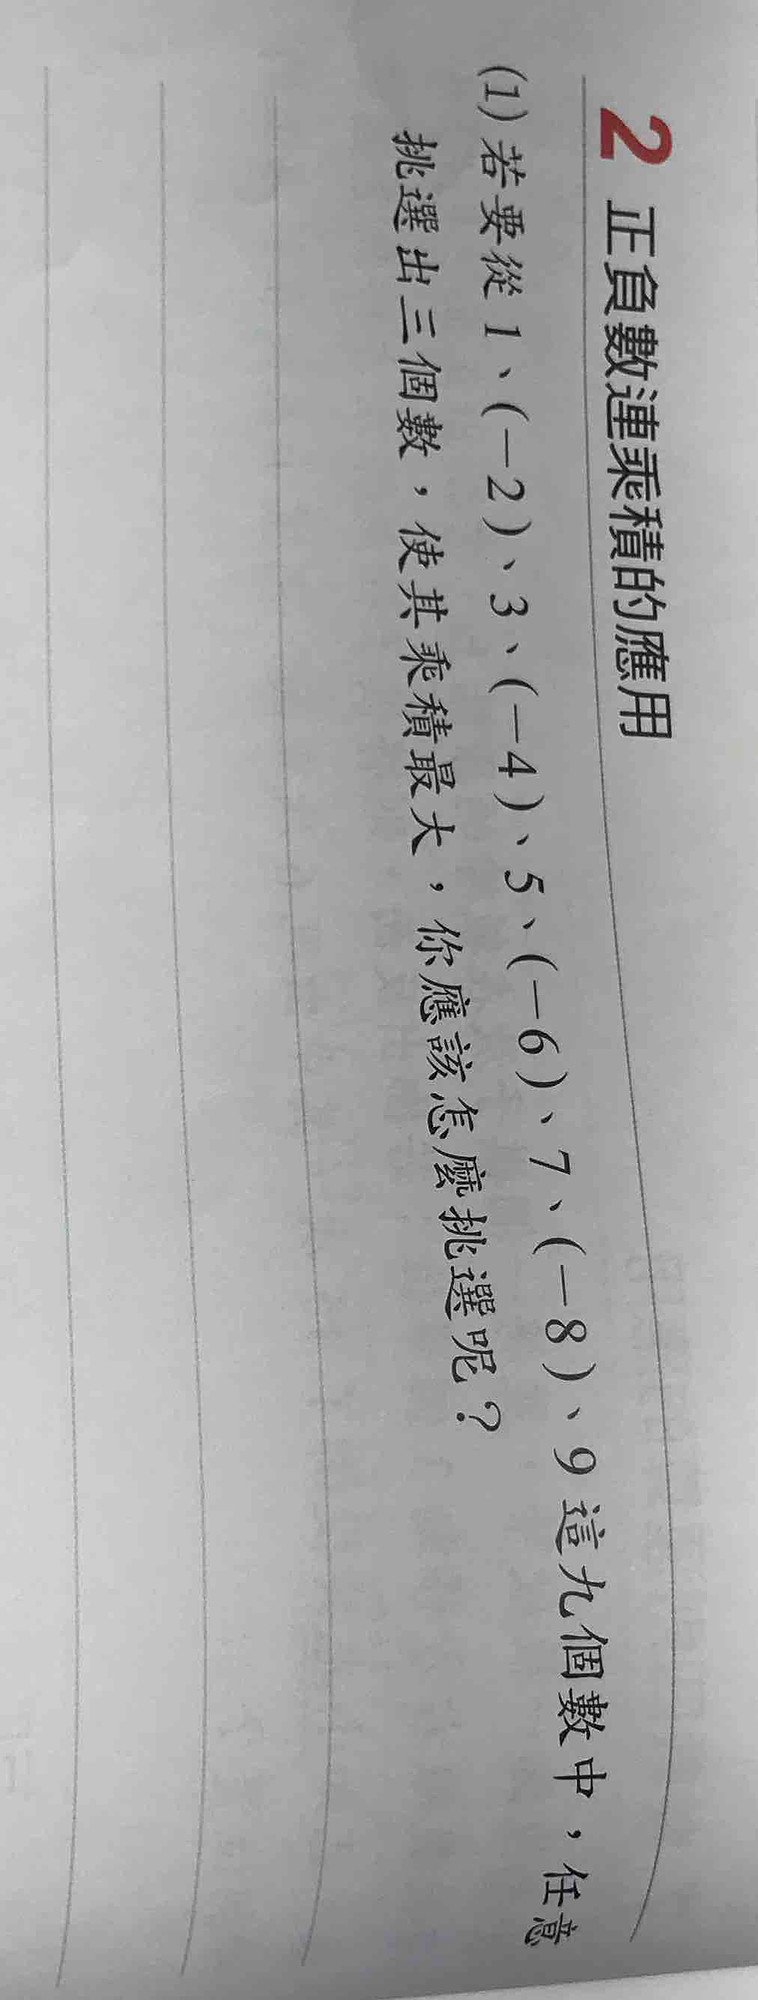 2 正負數連乘積的應用
(1) 若要從 1、(-2)、3、(-4)、5、(-6)、7、(-8)、9 這九個數中，任意
挑選出三個數，使其乘積最大，你應該怎麼挑選呢？